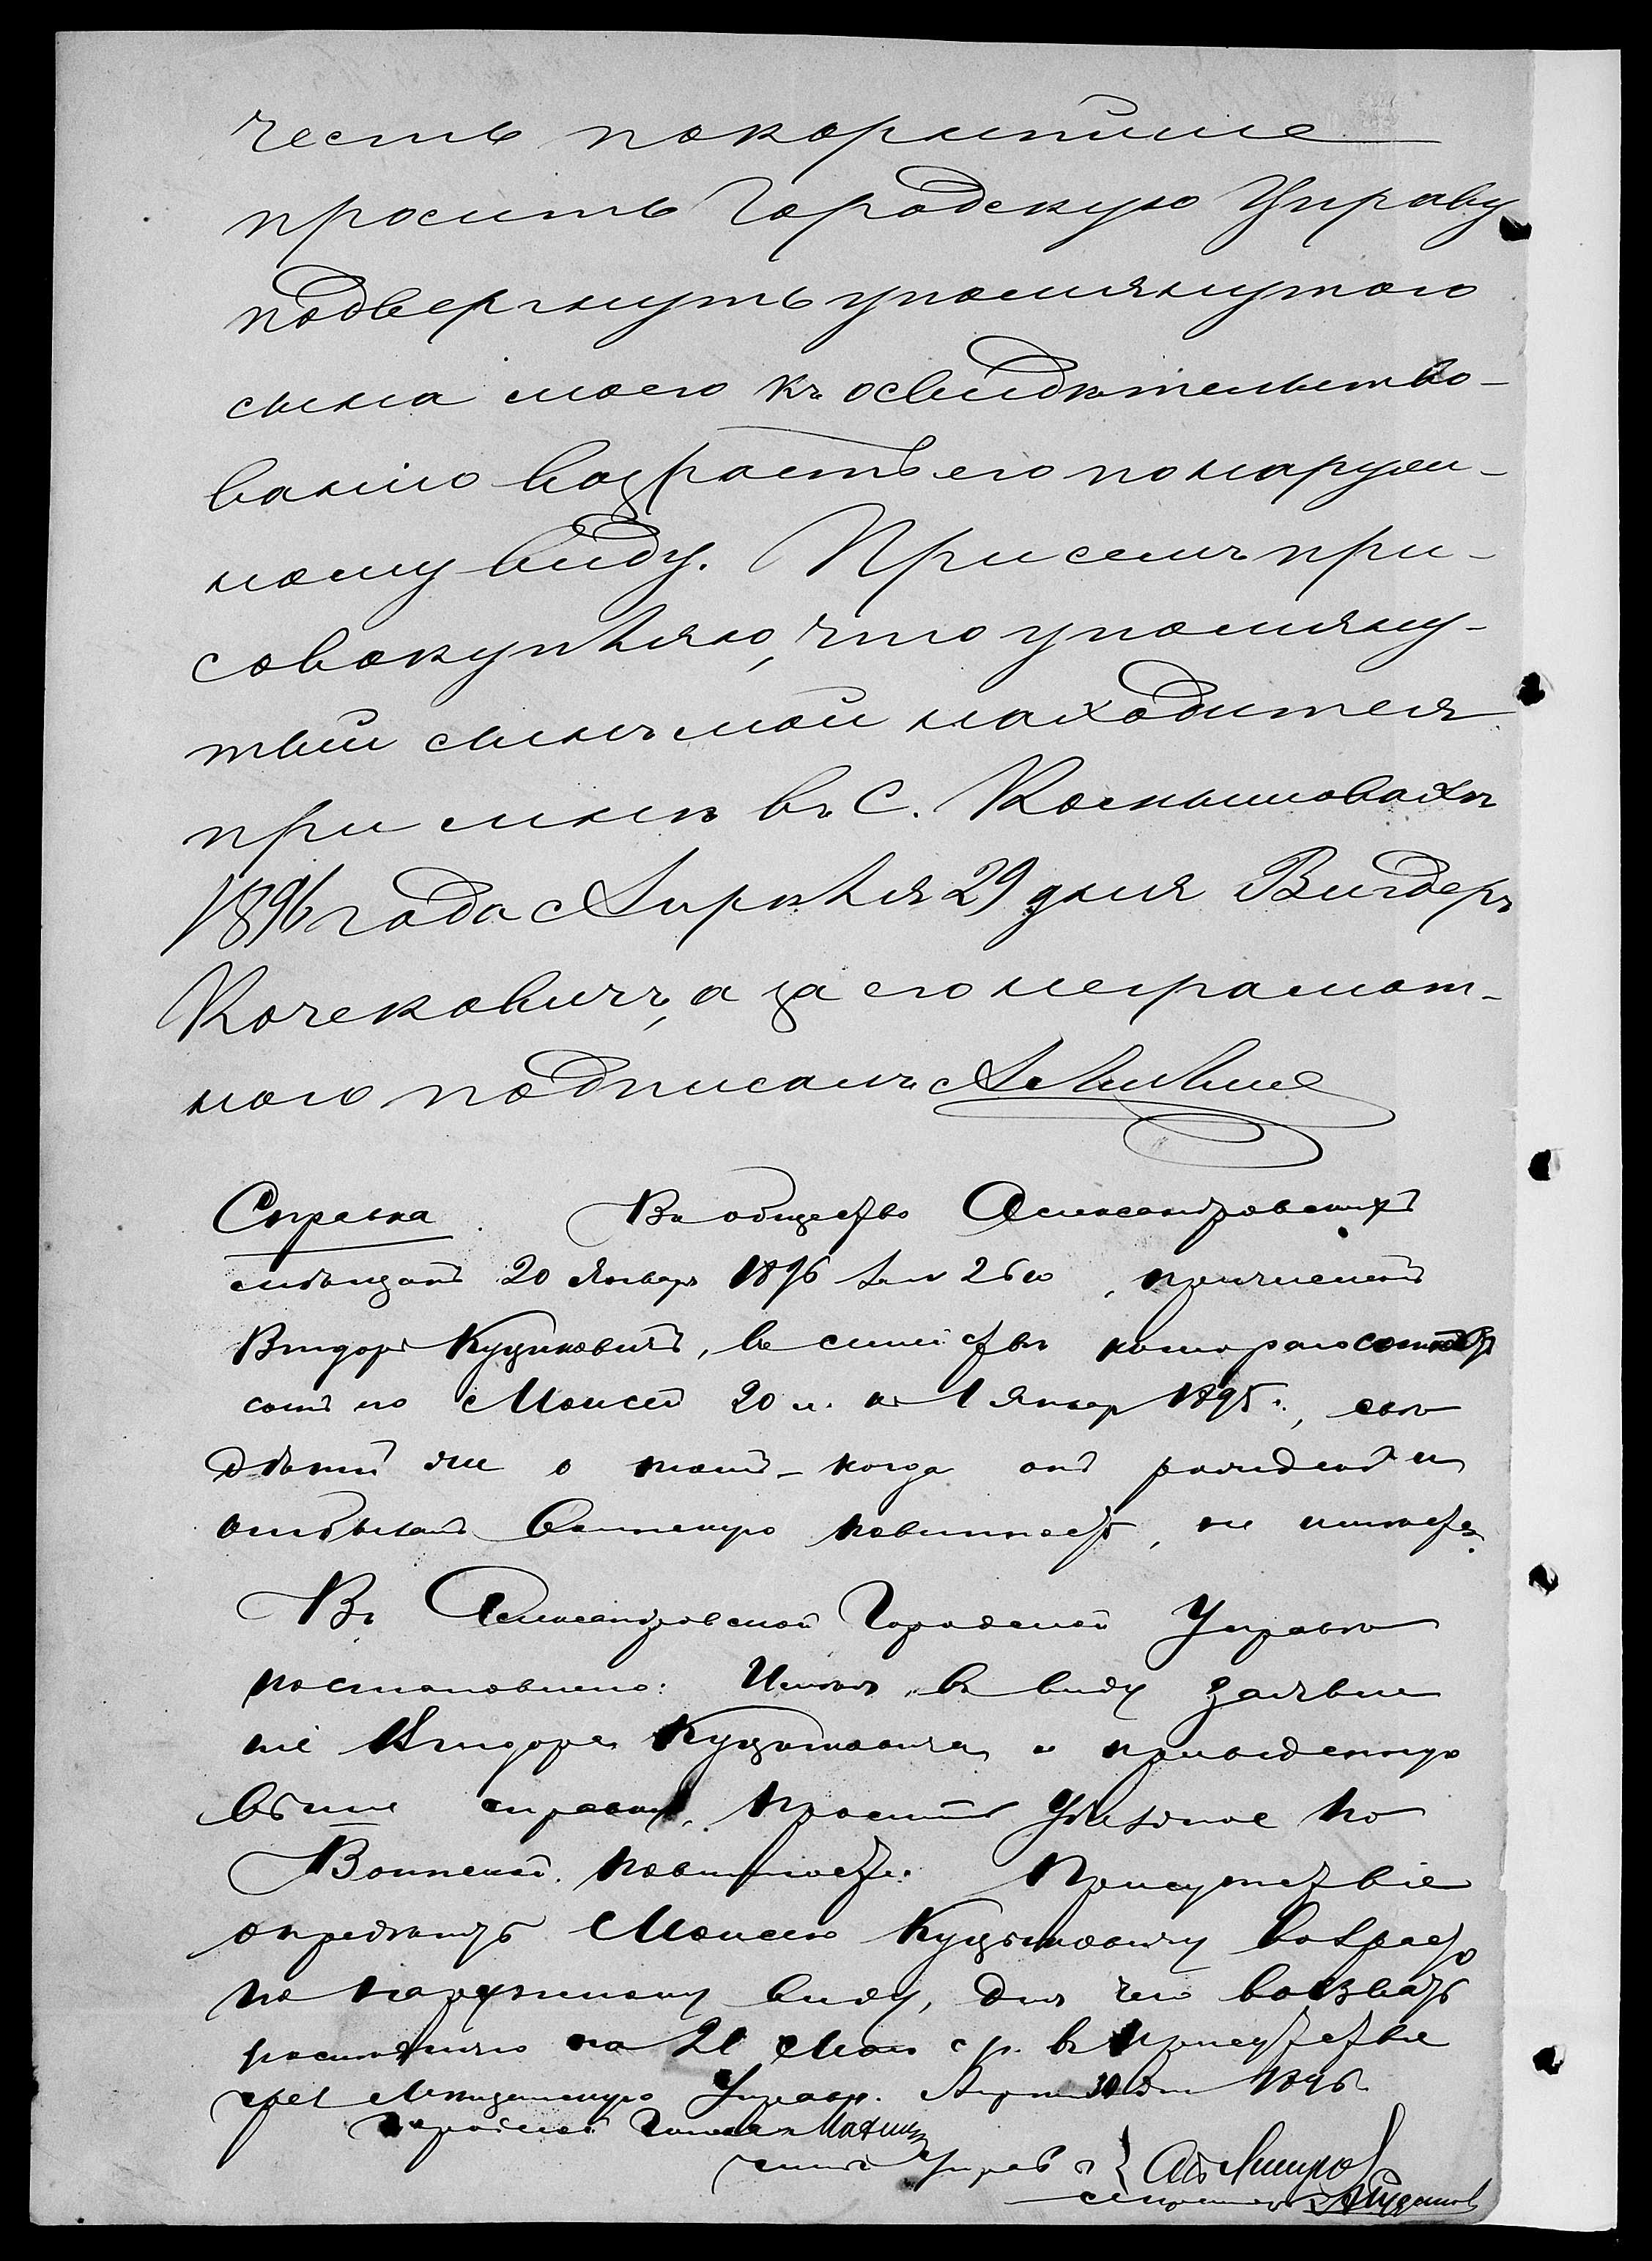 честь покорнѣйше
просить Городскую Управу
подвергнуть упомянутаго
сына моего къ освидѣтельство-
ванію возрастъ его по наруж-
ному виду. При семъ при-
совокупляю, что упомяну-
тый сынъ мой находится
при мнѣ въ С.
1896 года Апрѣля 29 дня Вигдоръ
Кочековичъ, а за его неграмот-
наго подписалъ
Справка. Въ общество Александровскихъ
мѣщанъ 20 Января 1896 за № 260, причисленъ
Вигдоръ Куцыковичъ, въ семействѣ котораго состоитъ
сынъ его Моисей 20 л. къ 1 Январ 1895 г., свѣ
дѣній же о томъ когда онъ рожденъ и
отбывалъ воинскую повинность, не имѣется.
Въ Александровской Городской Управѣ
постановлено: Имѣя въ виду заявле
ніе Вигдора Куцыковича и приведенную
выше справку, просить Уѣздное по
Воинской повинности Присутствіе
опредѣлить Моисею Куцыковичу возрастъ
по наружному виду, для чего вызвать
послѣдняго на 21 Мая с.г. въ присутствіе
чрез Мѣщанскую Управу. Апрѣля 30 дня 1896 г.
Городской Голова
члены Управы
секретарь